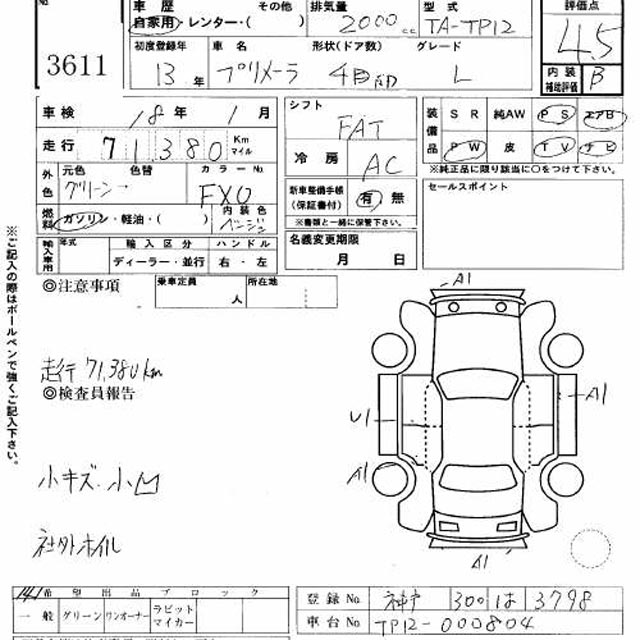 3611
車歴 自家用・レンター・( ) その他
排気量 2000 cc
型式 TA-TP12
評価点 4.5
内装補助評価 B
初度登録年 13年
車名 プリメーラ
形状(ドア数) 4D
グレード L
車検 18年 1月
走行 71380 Km マイル
外色 元色 グリーン 色替
カラーNo. FX0
燃料 ガソリン・軽油・( )
内装色 ベージュ
輸入車用 年式 輸入区分 ディーラー・並行 ハンドル 右・左
シフト FAT
冷房 AC
新車整備手帳(保証書付) 有 無
※書類と一緒に保管下さい。
名義変更期限 月 日
装備品 SR 純AW PS エアB
PW 皮 TV ナビ
※純正品に限り該当に○をつけて下さい。
セールスポイント
◎注意事項
乗車定員 人 所在地
走行 71,380km
◎検査員報告
小キズ・小凹
社外ホイル
A1
U1
A1
A1
A1
※ご記入の際はボールペンで強くご記入下さい。
希望出品ブロック
一般 グリーン ワンオーナー ラビットマイカー
登録No. 神戸 300 は 3798
車台No. TP12-000804